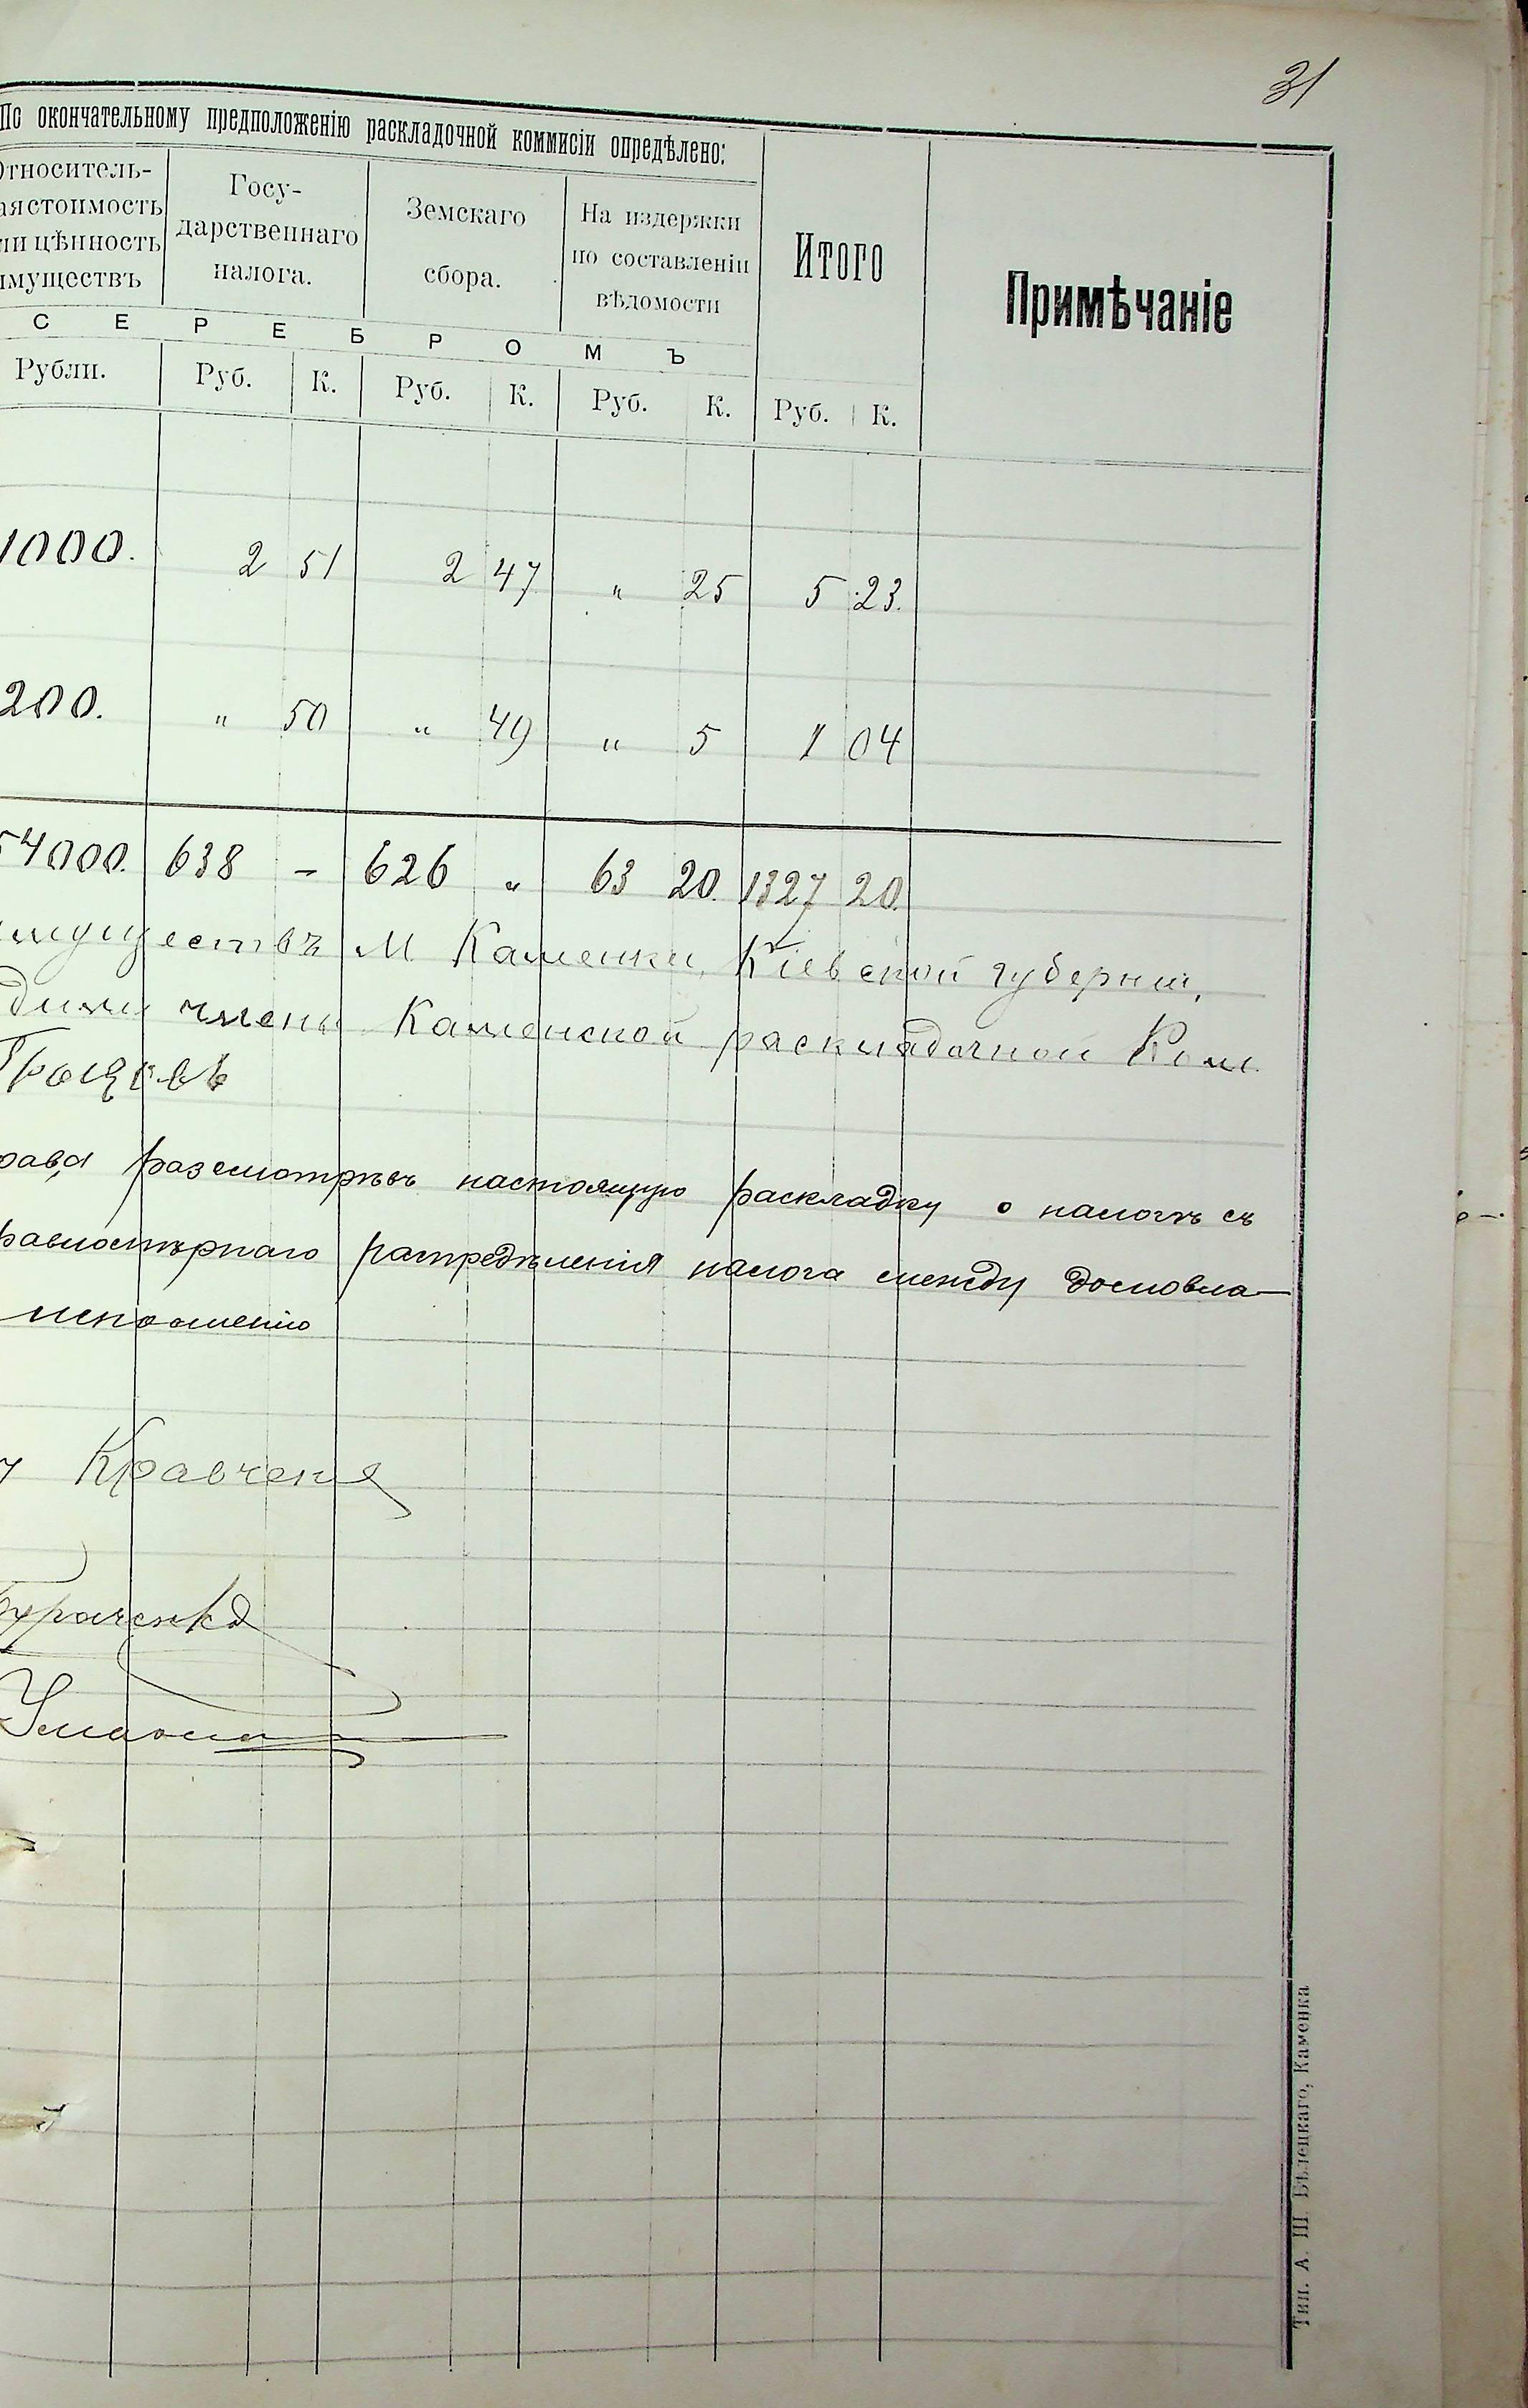 31
По окончательному предположенію раскладочной коммисіи опредѣлено:
Относитель-
ая стоимость
ли цѣнность
имуществъ
Госу-
дарственнаго
налога.
Земскаго
сбора.
На издержки
по составленіи
вѣдомости
Итого
Примѣчаніе
С Е Р Е Б Р О М Ъ
Рубли. Руб. К. Руб. К. Руб. К. Руб. К.
1000. 2 51 2 47 " 25 5 23.
200. " 50 " 49 " 5 1 04
54000. 638 - 626 " 63 20. 1327 20.
имуществъ М Каменки, Кіевской губерніи,
члены Каменской раскладочной Ком.
рава разсмотрѣвъ настоящую раскладку о налогѣ съ
равномѣрнаго распредѣленія налога между домовла-
исполненію
Кравченко
Тип. А. Ш. Бѣлецкаго, Каменка